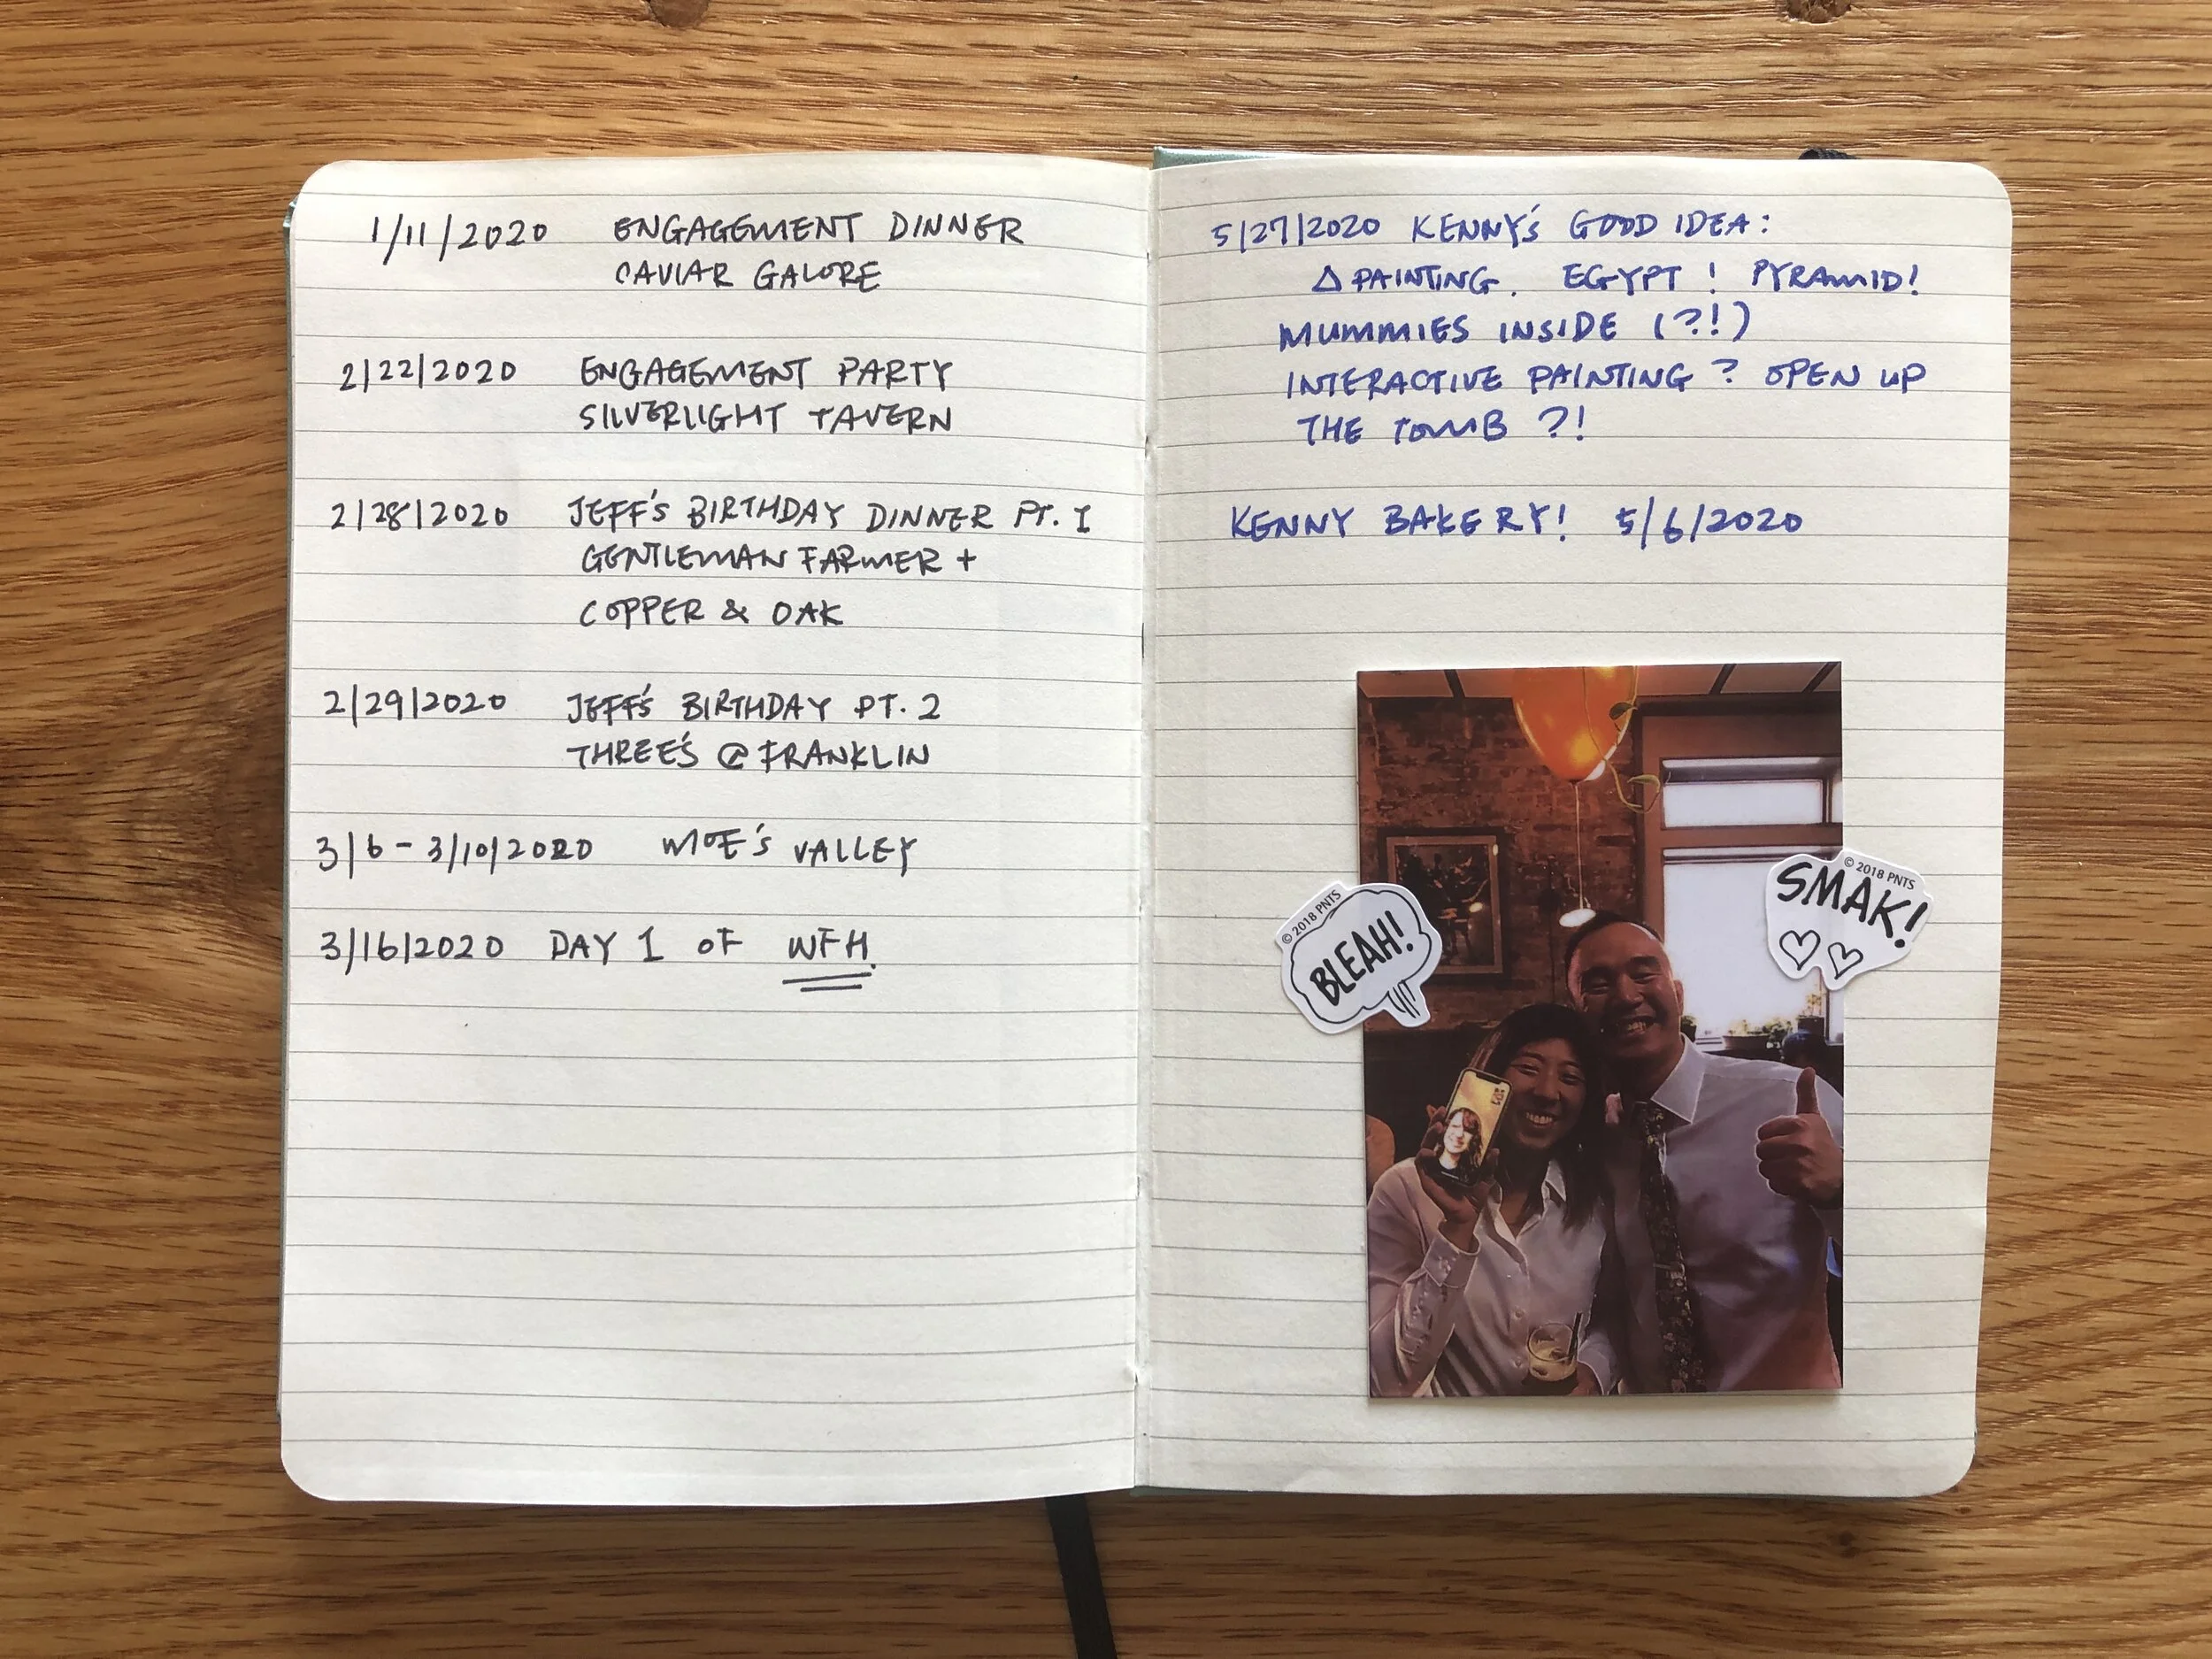 1/11/2020 ENGAGEMENT DINNER
CAVIAR GALORE
2/22/2020 ENGAGEMENT PARTY
SILVERLIGHT TAVERN
2/28/2020 JEFF'S BIRTHDAY DINNER PT. I
GENTLEMAN FARMER +
COPPER & OAK
2/29/2020 JEFF'S BIRTHDAY PT. 2
THREE'S @ FRANKLIN
3/6 - 3/10/2020 MOE'S VALLEY
3/16/2020 DAY 1 OF WFH.
5/27/2020 KENNY'S GOOD IDEA:
Δ PAINTING. EGYPT! PYRAMID!
MUMMIES INSIDE (?!)
INTERACTIVE PAINTING? OPEN UP
THE TOMB ?!
KENNY BAKERY! 5/6/2020
© 2018 PNTS
BLEAH!
© 2018 PNTS
SMAK!